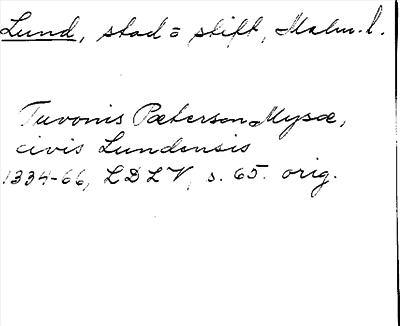 Lund, stad = stift, Malm. l.
Tuvonis Pæterson Mysæ,
civis Lundensis
1334-66, LDLV, s. 65. orig.